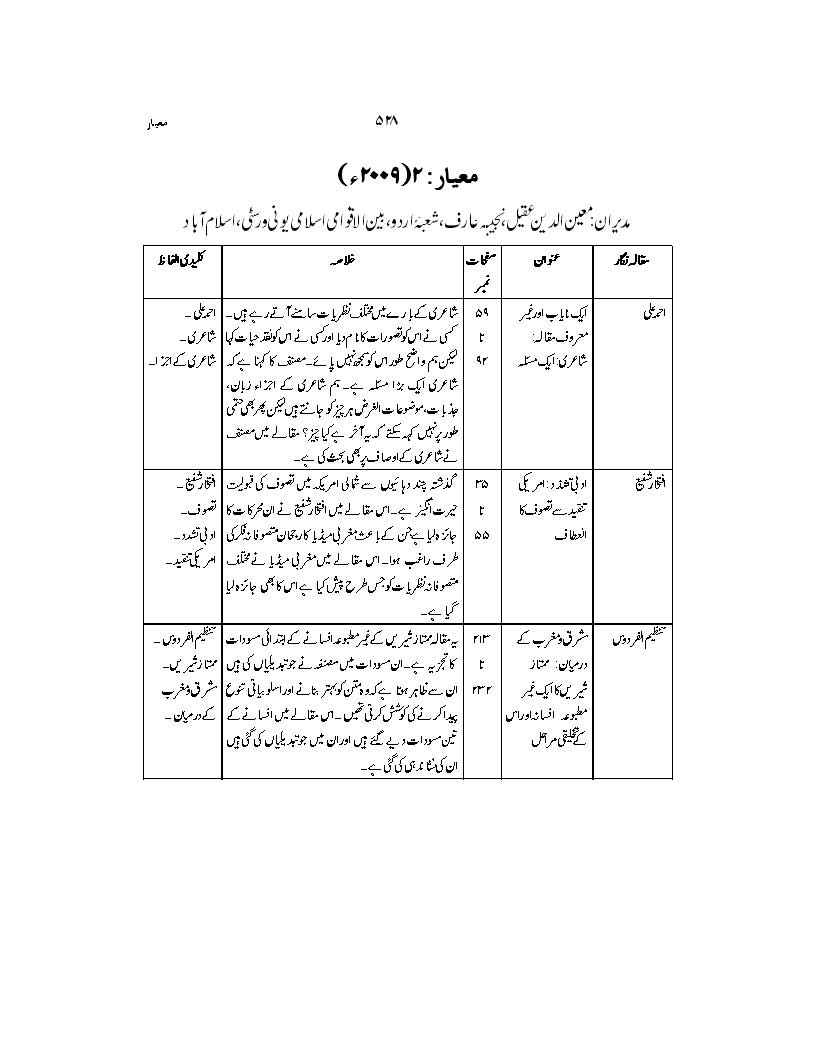 معیار
۵۲۸
معیار : ۲ (۲۰۰۹ء)
مدیران: معین الدین عقیل، نجیبہ عارف، شعبۂ اردو، بین الاقوامی اسلامی یونی ورسٹی، اسلام آباد
مقالہ نگار عنوان صفحات خلاصہ کلیدی الفاظ
نمبر
احمد علی ایک نایاب اور غیر ۵۹ شاعری کے بارے میں مختلف نظریات سامنے آتے رہے ہیں۔ احمد علی۔
معروف مقالہ: تا کسی نے اس کو تصورات کا نام دیا اور کسی نے اس کو نقد حیات کہا شاعری۔
شاعری: ایک مسئلہ ۹۲ لیکن ہم واضح طور اس کو سمجھ نہیں پائے۔ مصنف کا کہنا ہے کہ شاعری کے اجزا۔
شاعری ایک بڑا مسئلہ ہے۔ ہم شاعری کے اجزاء زبان،
جذبات، موضوعات الغرض ہر چیز کو جانتے ہیں لیکن پھر بھی حتمی
طور پر نہیں کہہ سکتے کہ یہ آخر ہے کیا چیز؟ مقالے میں مصنف
نے شاعری کے اوصاف پر بھی بحث کی ہے۔
افتخار شفیع ادبی تشدد: امریکی ۳۵ گذشتہ چند دہائیوں سے شمالی امریکہ میں تصوف کی قبولیت افتخار شفیع۔
تنقید سے تصوف کا تا حیرت انگیز ہے۔ اس مقالے میں افتخار شفیع نے ان محرکات کا تصوف۔
انعطاف ۵۵ جائزہ لیا ہے جن کے باعث مغربی میڈیا کا رجحان متصوفانہ فکر کی ادبی تشدد۔
طرف راغب ہوا۔ اس مقالے میں مغربی میڈیا نے مختلف امریکی تنقید۔
متصوفانہ نظریات کو جس طرح پیش کیا ہے اس کا بھی جائزہ لیا
گیا ہے۔
تنظیم الفردوس مشرق و مغرب کے ۲۱۳ یہ مقالہ ممتاز شیریں کے غیر مطبوعہ افسانے کے ابتدائی مسودات تنظیم الفردوس۔
درمیان: ممتاز تا کا تجزیہ ہے۔ ان مسودات میں مصنفہ نے جو تبدیلیاں کی ہیں ممتاز شیریں۔
شیریں کا ایک غیر ۲۳۲ ان سے ظاہر ہوتا ہے کہ وہ متن کو بہتر بنانے اور اسلوبیاتی تنوع مشرق و مغرب
مطبوعہ افسانہ اور اس پیدا کرنے کی کوشش کرتی تھیں۔ اس مقالے میں افسانے کے کے درمیان۔
کے تخلیقی مراحل تین مسودات دیے گئے ہیں اور ان میں جو تبدیلیاں کی گئی ہیں
ان کی نشاندہی کی گئی ہے۔